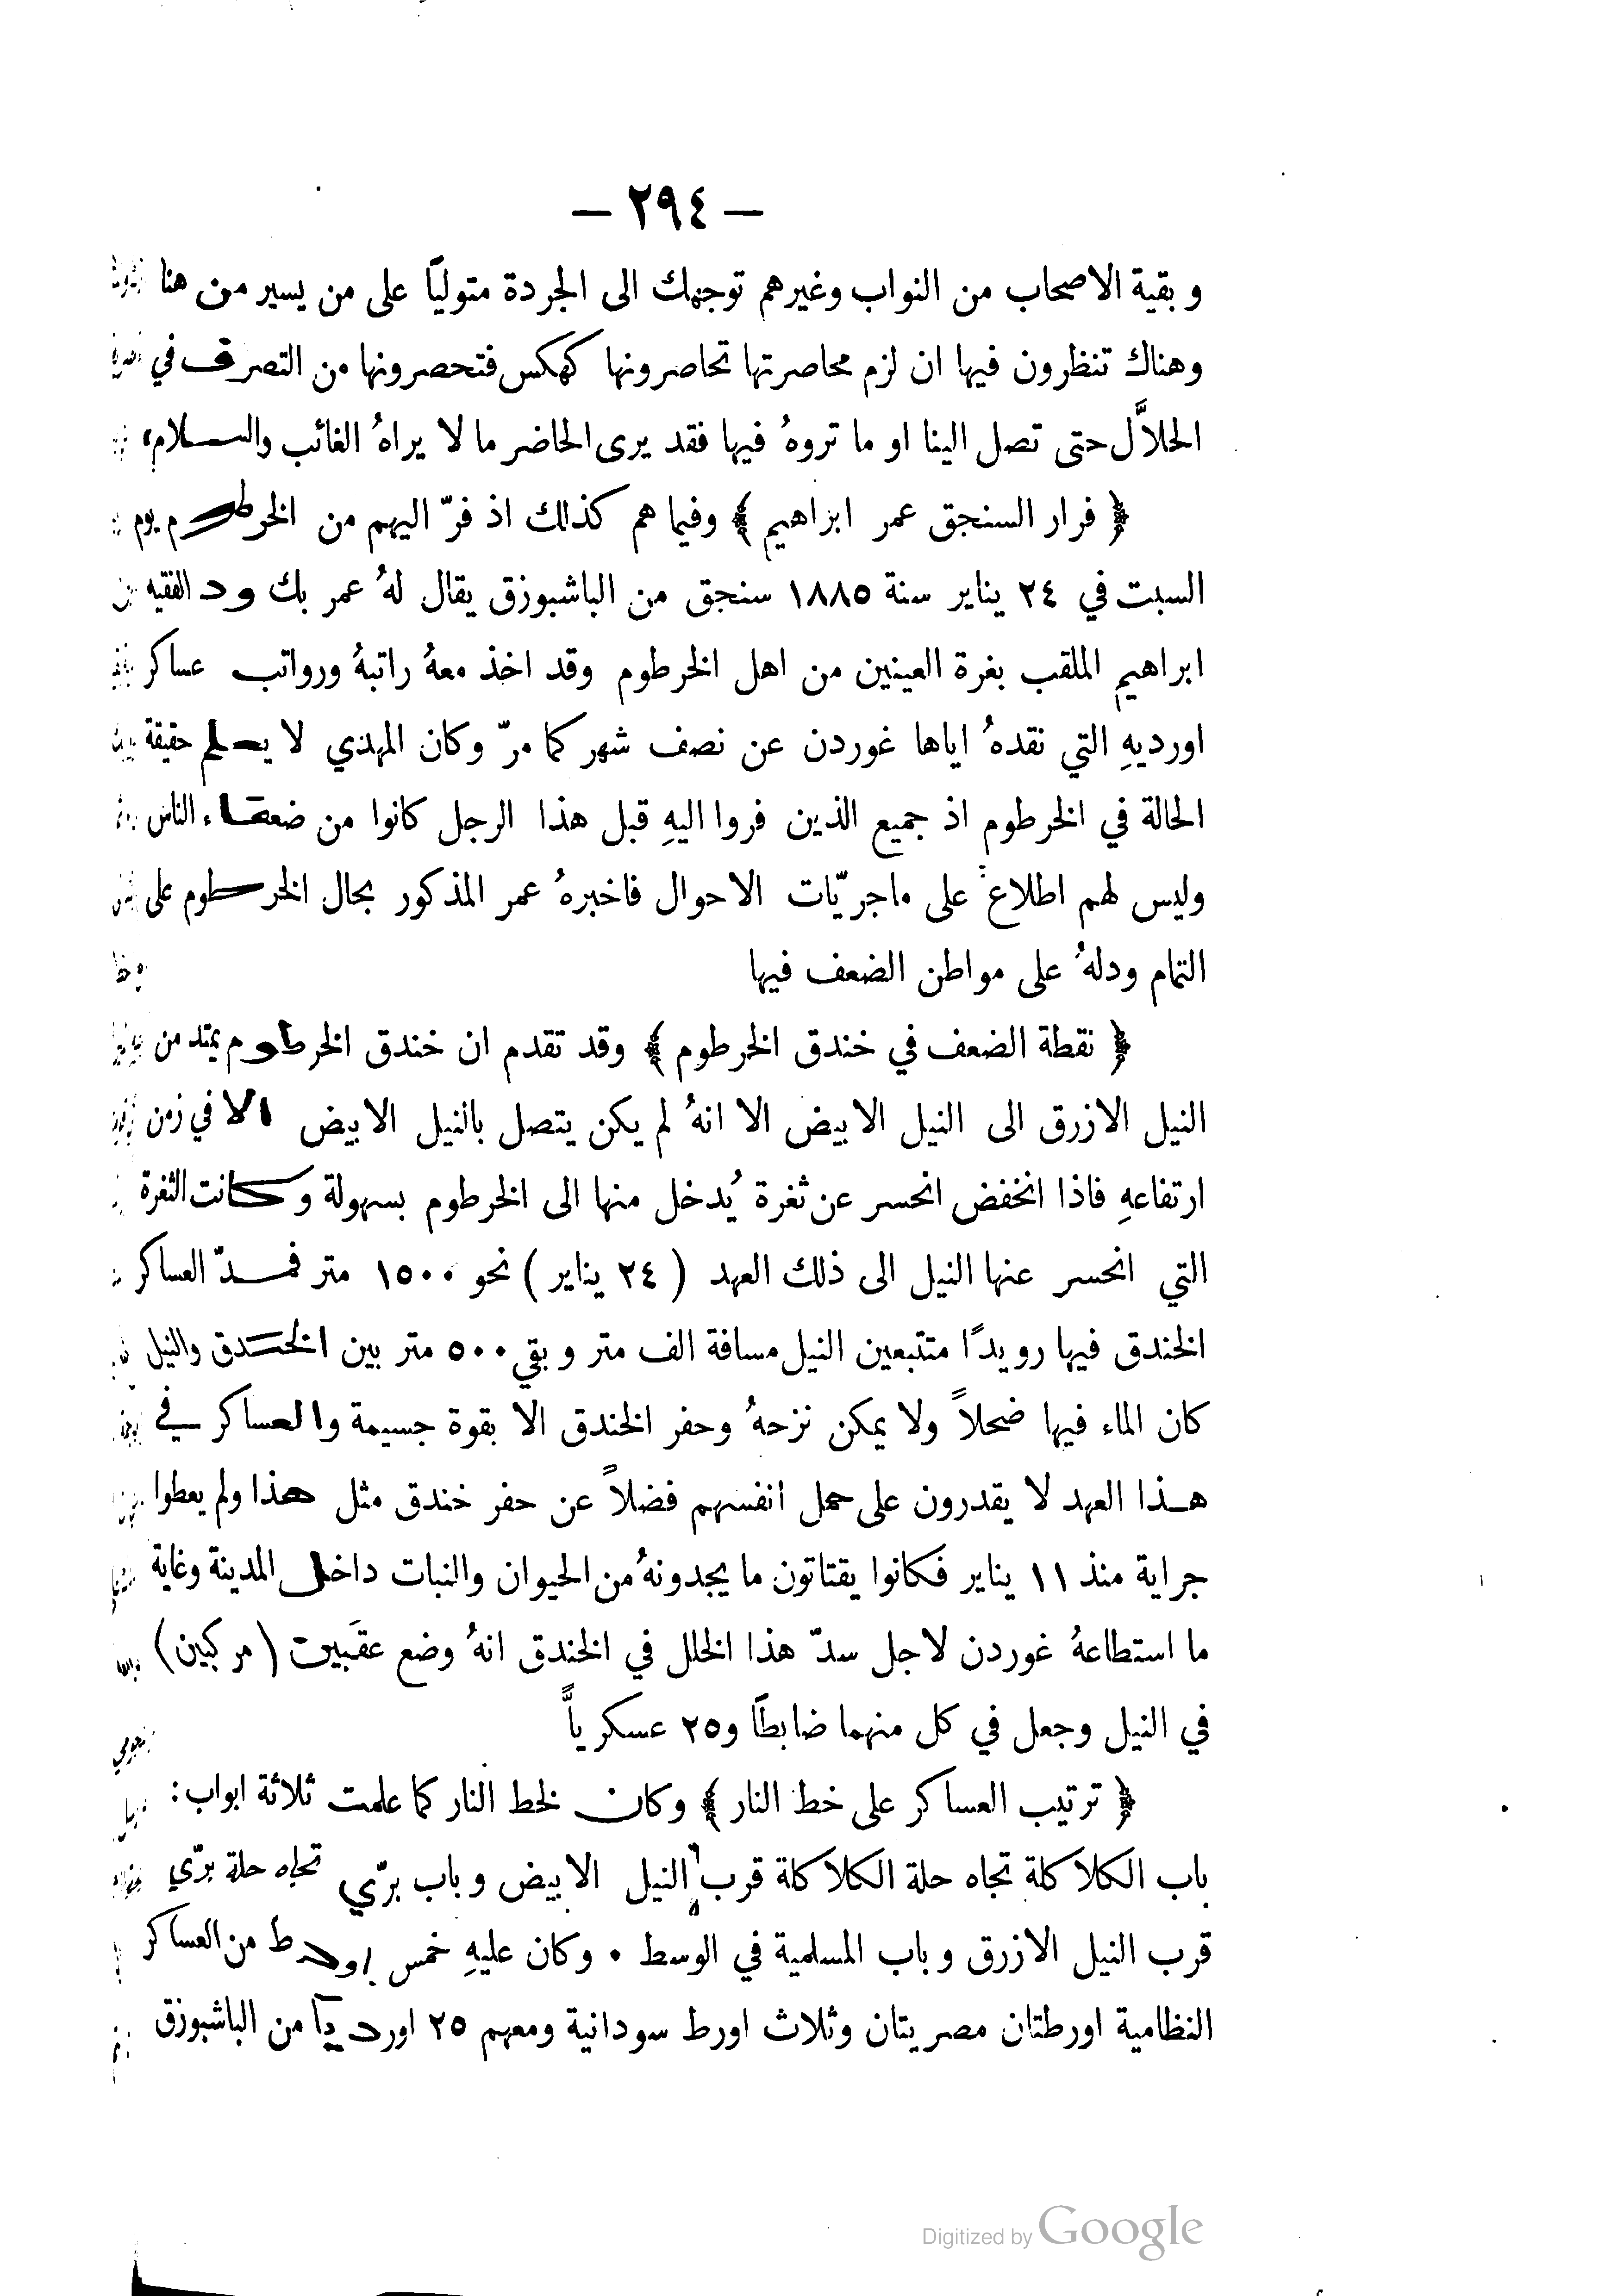 — ٢٩٤ —
وبقية الاصحاب من النواب وغيرهم توجهك الى الجردة متوليًا على من يسير من هنا
وهناك تنظرون فيها ان لزم محاصرتها تحاصرونها كهكس فتحصرونها من التصرف في
الحلاَّل حتى تصل الينا او ما تروهُ فيها فقد يرى الحاضر ما لا يراهُ الغائب والسلام،
﴿ فرار السنجق عمر ابراهيم ﴾ وفيما هم كذلك اذ فرّ اليهم من الخرطوم يوم
السبت في ٢٤ يناير سنة ١٨٨٥ سنجق من الباشبوزق يقال لهُ عمر بك ود الفقيه
ابراهيم الملقب بغرة العينين من اهل الخرطوم وقد اخذ معهُ راتبهُ ورواتب عساكر
اورديهِ التي نقدهُ اياها غوردن عن نصف شهر كما مرّ وكان المهدي لا يعلم حقيقة
الحالة في الخرطوم اذ جميع الذين فروا اليهِ قبل هذا الرجل كانوا من ضعفاء الناس
وليس لهم اطلاع على ماجريّات الاحوال فاخبرهُ عمر المذكور بحال الخرطوم على
التمام ودلهُ على مواطن الضعف فيها
﴿ نقطة الضعف في خندق الخرطوم ﴾ وقد تقدم ان خندق الخرطوم يمتد من
النيل الازرق الى النيل الابيض الا انهُ لم يكن يتصل بالنيل الابيض الا في زمن
ارتفاعهِ فاذا انخفض انحسر عن ثغرة يُدخل منها الى الخرطوم بسهولة وكانت الثغرة
التي انحسر عنها النيل الى ذلك العهد ( ٢٤ يناير ) نحو ١٥٠٠ متر فمدّ العساكر
الخندق فيها رويدًا متتبعين النيل مسافة الف متر وبقي ٥٠٠ متر بين الخندق والنيل
كان الماء فيها ضحلاً ولا يمكن نزحهُ وحفر الخندق الا بقوة جسيمة والعساكر في
هذا العهد لا يقدرون على حمل انفسهم فضلاً عن حفر خندق مثل هذا ولم يعطوا
جراية منذ ١١ يناير فكانوا يقتاتون ما يجدونهُ من الحيوان والنبات داخل المدينة وغاية
ما استطاعهُ غوردن لاجل سدّ هذا الخلل في الخندق انهُ وضع عقَبيت (مركبين)
في النيل وجعل في كل منهما ضابطًا و٢٥ عسكريًّا
﴿ ترتيب العساكر على خط النار ﴾ وكان لخط النار كما علمت ثلاثة ابواب:
باب الكلاكلة تجاه حلة الكلاكلة قرب النيل الابيض وباب برّي تجاه حلة برّي
قرب النيل الازرق وباب المسلمية في الوسط . وكان عليهِ خمس اورط من العساكر
النظامية اورطتان مصريتان وثلاث اورط سودانية ومعهم ٢٥ اورديًا من الباشبوزق
Digitized by Google